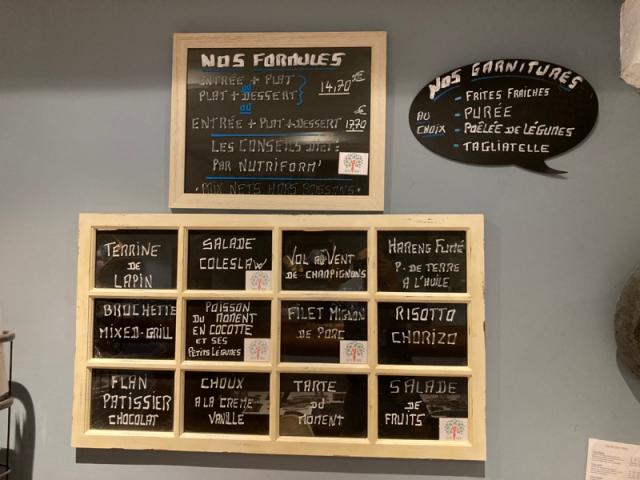 NOS FORMULES
ENTRÉE + PLAT
ou
PLAT + DESSERT
14,70€
ou
ENTRÉE + PLAT + DESSERT 17,70€
LES CONSEILS DIÉT.
PAR NUTRIFORM'
• PRIX NETS HORS BOISSONS •
NOS GARNITURES
AU CHOIX
- FRITES FRAÎCHES
- PURÉE
- POÊLÉE DE LÉGUMES
- TAGLIATELLE
TERRINE
DE
LAPIN
SALADE
COLESLAW
VOL AU VENT
DE CHAMPIGNONS
HARENG FUMÉ
P. DE TERRE
A L'HUILE
BROCHETTE
MIXED-GRILL
POISSON
DU MOMENT
EN COCOTTE
ET SES
PETITS LÉGUMES
FILET MIGNON
DE PORC
RISOTTO
CHORIZO
FLAN
PATISSIER
CHOCOLAT
CHOUX
A LA CREME
VANILLE
TARTE
DU
MOMENT
SALADE
DE
FRUITS